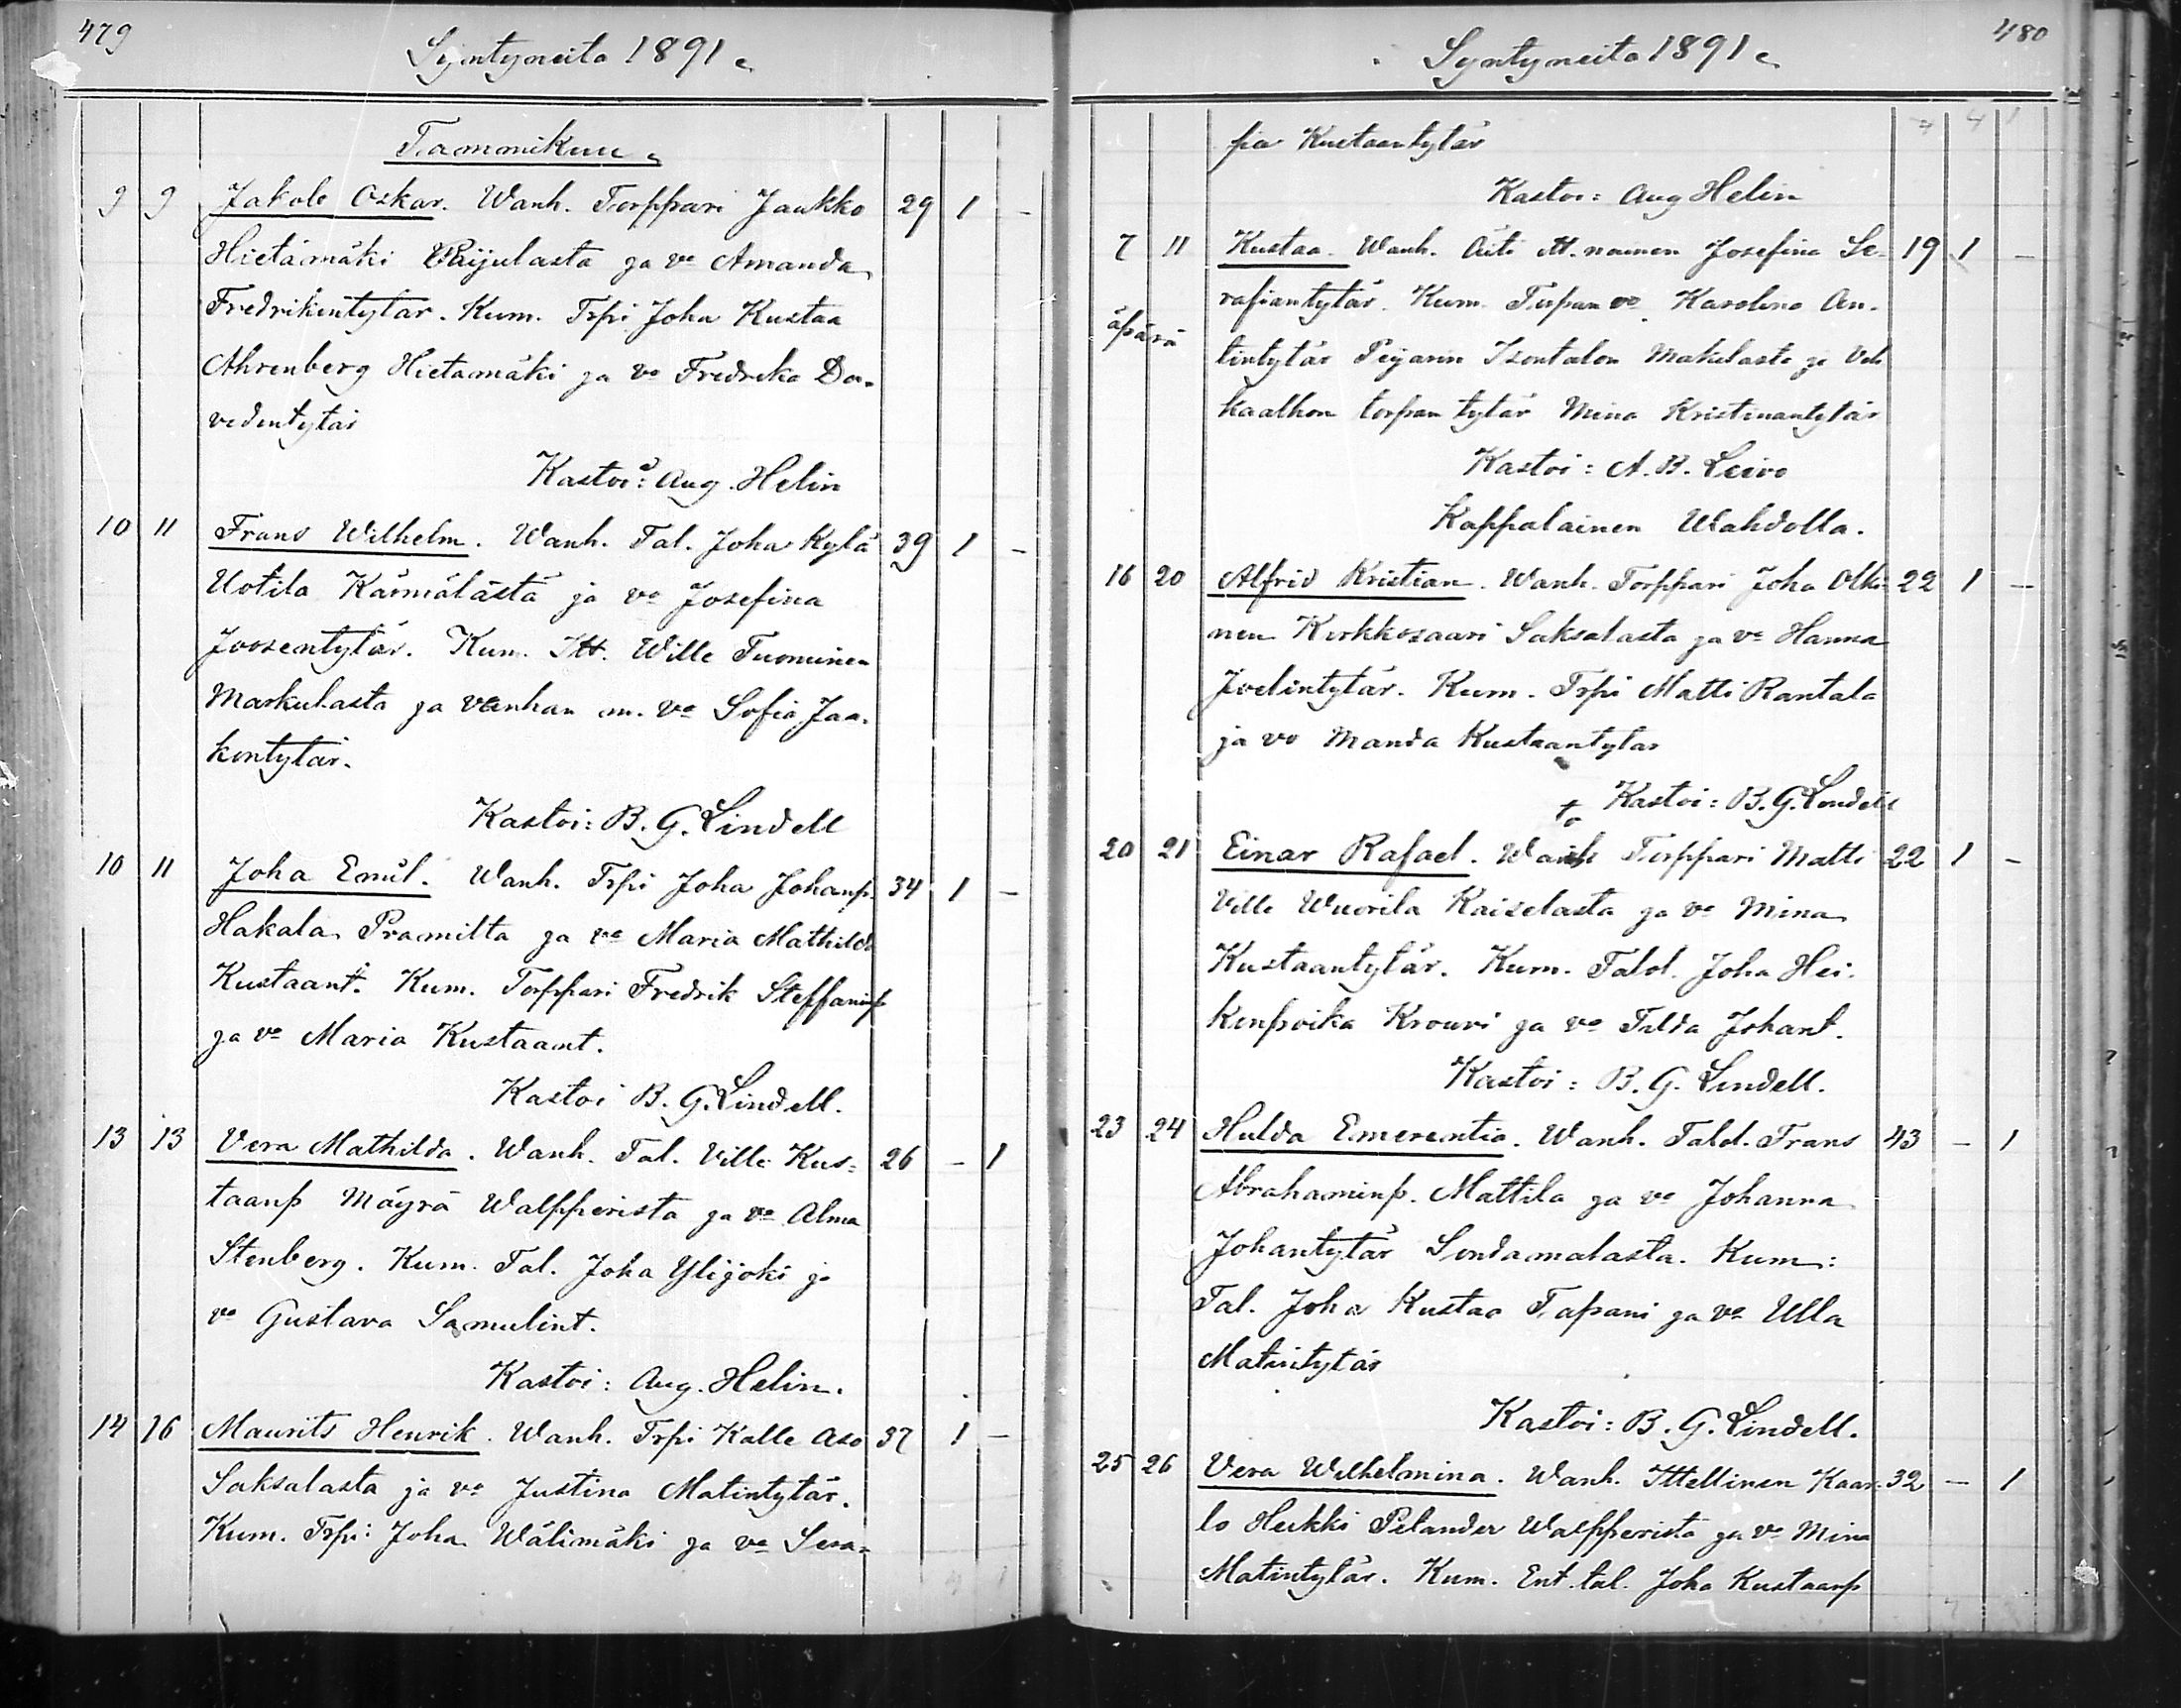 479
Syntyneitä 1891
Tammikuu
9 9 Jakob Oskar. Wanh. Torppari Jaakko 29 1 -
Hietamäki Raijulasta ja vo Amanda
Fredrikintytär. Kum. Trpi Joha Kustaa
Ahrenberg Hietamäki ja vo Fredrika Da-
vidintytär
Kastoi: Aug. Helin
10 11 Frans Wilhelm. Wanh. Tal. Joha Kylä 39 1 -
Uotila Kärmälästä ja vo Josefina
Joosentytär. Kum. Itt. Wille Tuominen
Markulasta ja vanhan m. vo Sofia Jaa-
kontytär.
Kastoi: B. G. Lindell
10 11 Joha Emil. Wanh. Trpi Joha Johanp. 34 1 -
Hakala Pramilta ja vo Maria Mathilda
Kustaant. Kum. Torppari Fredrik Steffaninp
ja vo Maria Kustaant.
Kastoi B. G. Lindell.
13 13 Vera Mathilda. Wanh. Tal. Ville Kus- 26 - 1
taanp Mäyrä Walpperista ja vo Alma
Stenberg. Kum. Tal. Joha Ylijoki ja
vo Gustava Samulint.
Kastoi: Aug. Helin.
14 16 Maurits Henrik. Wanh. Trpi Kalle Aso 37 1 -
Saksalasta ja vo Justina Matintytär.
Kum. Trpi Joha Wälimäki ja vo Sera-
480
Syntyneitä 1891
fia Kustaantytär
Kastoi: Aug Helin
7 11 Kustaa. Wanh. Äiti Itt. nainen Josefina Se- 19 1 -
rafiantytär. Kum. Torpan vo Karolina An-
äpärä
tintytär Peijarin Isontalon Makulasta ja Veh
kaalhon torpan tytär Mina Kristinantytär
Kastoi: A. B. Leivo
Kappalainen Wahdolla.
16 20 Alfrid Kristian. Wanh. Torppari Joha Olki- 22 1 -
nen Kirkkosaari Saksalasta ja vo Hanna
Joelintytär. Kum. Trpi Matti Rantala
ja vo Manda Kustaantytär
Kastoi: B. G. Lindell
20 21 Einar Rafael. Wanh Torppari Matti 22 1 -
Ville Wuorila Kaiselasta ja vo Mina
Kustaantytär. Kum. Talol. Joha Hei-
kinpoika Krouvi ja vo Tilda Johant.
Kastoi: B. G. Lindell.
23 24 Hulda Emerentia. Wanh. Talol. Frans 43 - 1
Abrahaminp. Mattila ja vo Johanna
Johantytär Sondamalasta. Kum:
Tal. Joha Kustaa Tapani ja vo Ulla
Matintytär
Kastoi: B. G. Lindell.
25 26 Vera Wilhelmina. Wanh. Ittellinen Kaar- 32 - 1
lo Heikki Pelander Walpperista ja vo Mina
Matintytär. Kum. Ent. tal. Joha Kustaanp